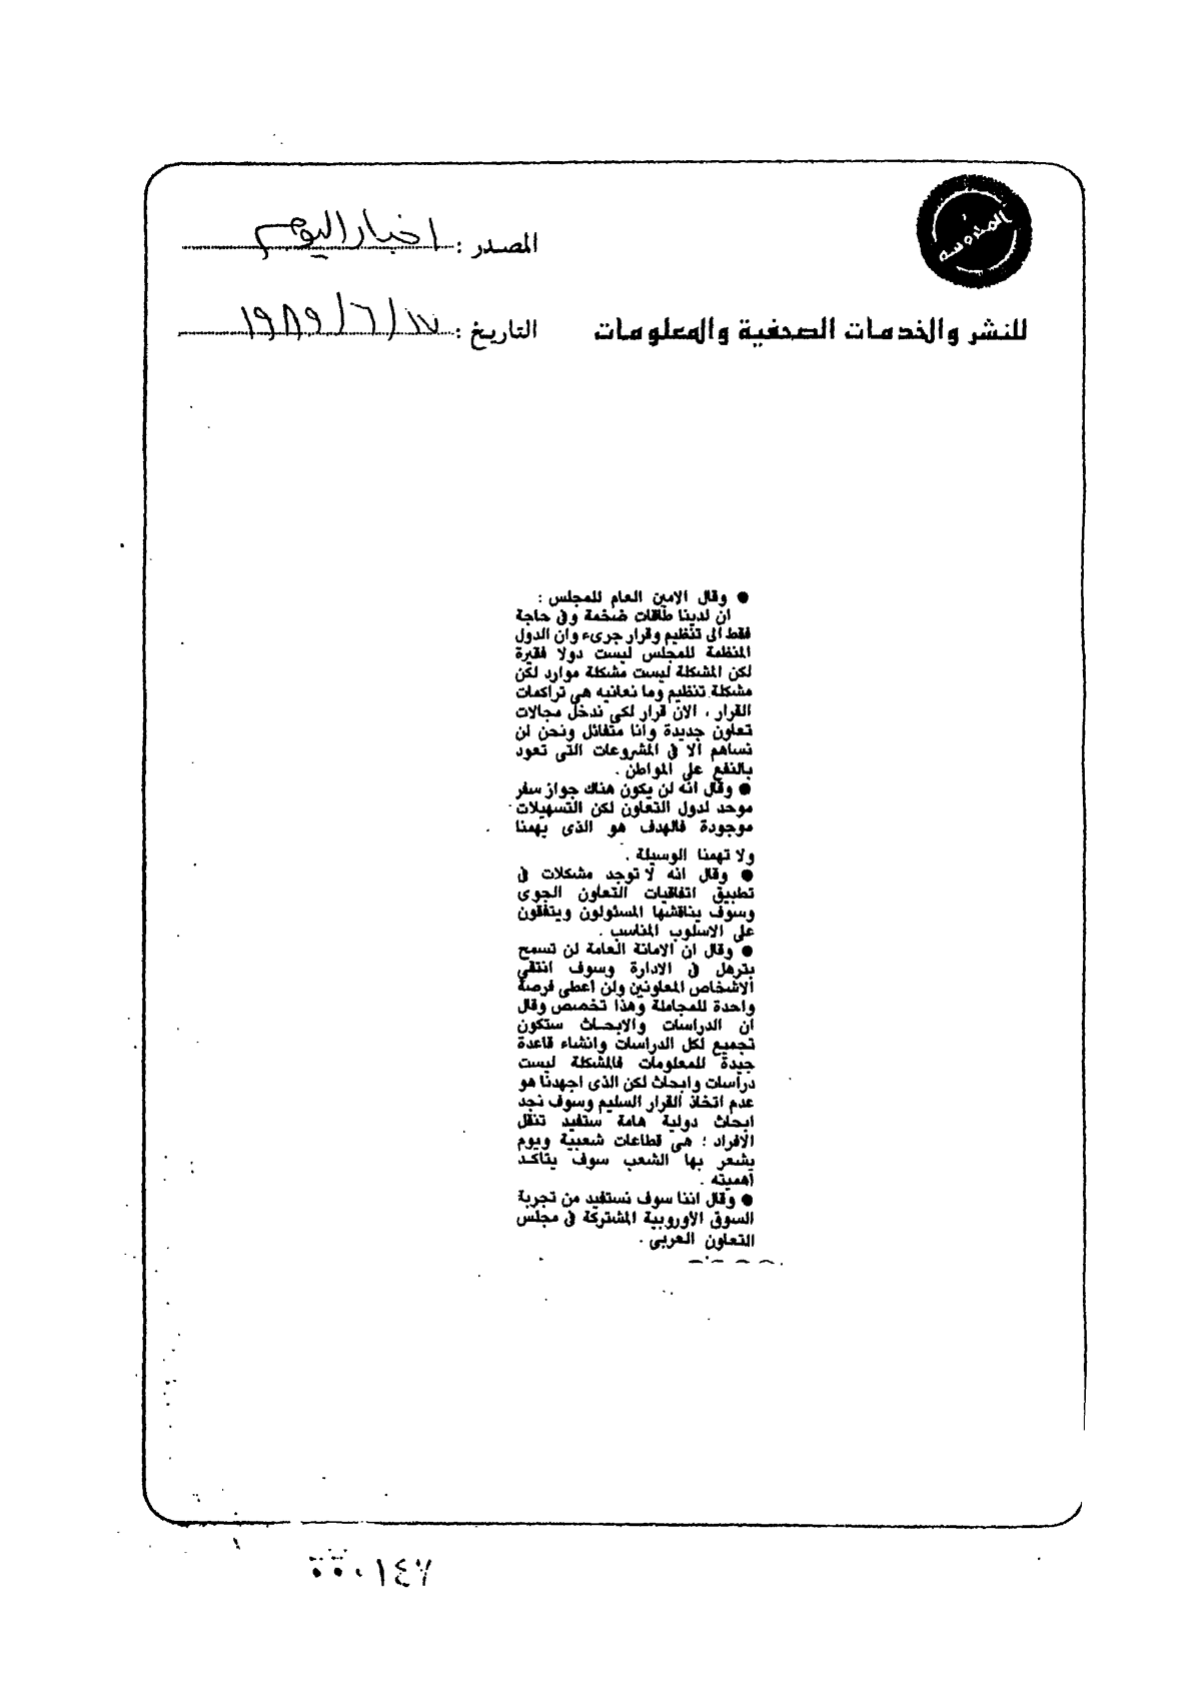 المحروسة
المصدر : اخبار اليوم
للنشر والخدمات الصحفية والمعلومات
التاريخ : ١٧/٦/١٩٨٩
● وقال الامين العام للمجلس :
ان لدينا طاقات ضخمة وفى حاجة
فقط الى تنظيم وقرار جرىء وان الدول
المنظمة للمجلس ليست دولا فقيرة
لكن المشكلة ليست مشكلة موارد لكن
مشكلة تنظيم وما نعانيه هى تراكمات
القرار ، الان قرار لكى ندخل مجالات
تعاون جديدة وانا متفائل ونحن لن
نساهم الا فى المشروعات التى تعود
بالنفع على المواطن .
● وقال انه لن يكون هناك جواز سفر
موحد لدول التعاون لكن التسهيلات
موجودة فالهدف هو الذى يهمنا
ولا تهمنا الوسيلة .
● وقال انه لا توجد مشكلات فى
تطبيق اتفاقيات التعاون الجوى
وسوف يناقشها المسئولون ويتفقون
على الاسلوب المناسب .
● وقال ان الامانة العامة لن تسمح
بترهل فى الادارة وسوف انتقى
الاشخاص المعاونين ولن اعطى فرصة
واحدة للمجاملة وهذا تخصص وقال
ان الدراسات والابحاث ستكون
تجميع لكل الدراسات وانشاء قاعدة
جيدة للمعلومات فالمشكلة ليست
دراسات وابحاث لكن الذى اجهدنا هو
عدم اتخاذ القرار السليم وسوف نجد
ابحاث دولية هامة ستفيد تنقل
الافراد ؛ هى قطاعات شعبية ويوم
يشعر بها الشعب سوف يتأكد
اهميته .
● وقال اننا سوف نستفيد من تجربة
السوق الأوروبية المشتركة فى مجلس
التعاون العربى .
١٤٧